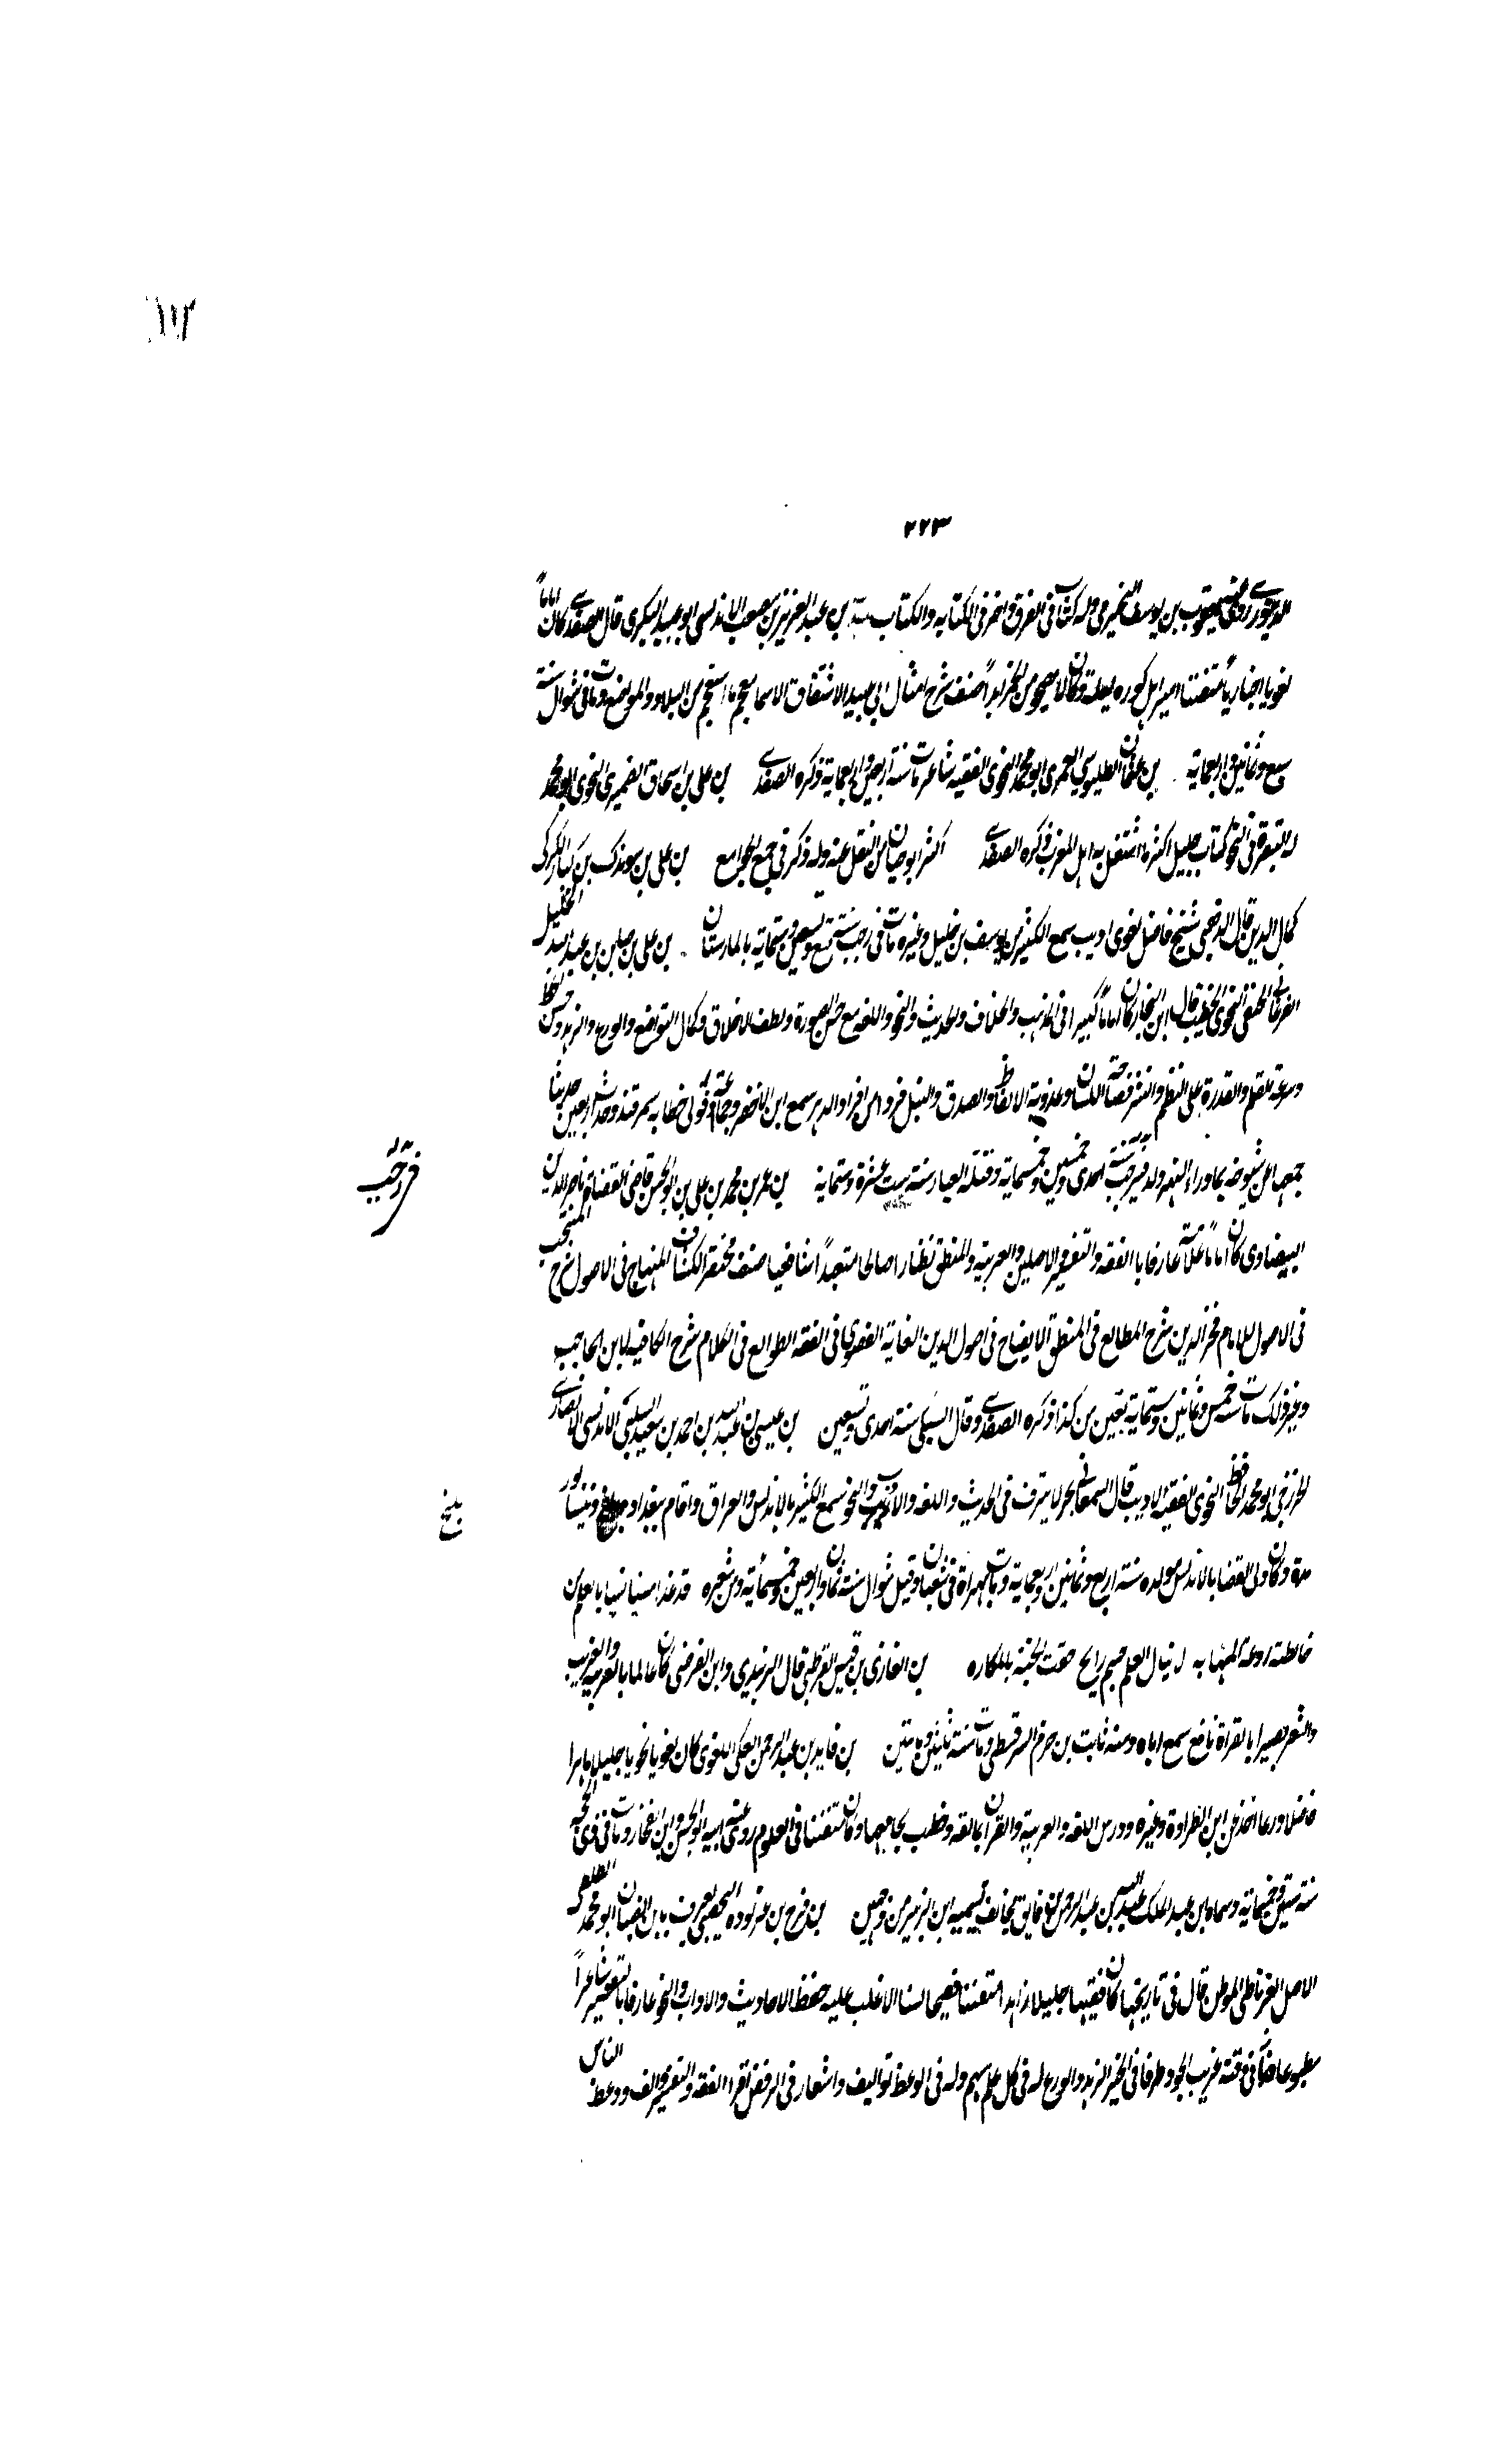 ٢٢٣
الدينوري روى عن يعقوب بن يوسف النجيرمي وله كتاب في الفرق واخر في الكتابة والكتاب بن عبد العزيز بن مصعب الاندلسي ابو عبيد البكري قال الصفدي كان اماماً
لغويا اخباريا متفننا امير اهل كوره لبلة وكان لا يصحو من الخمر ابداً صنف شرح امثال ابي عبيد الاشتقاق الاسما معجم ما استعجم من البلاد والمواضع ومات في شوال سنة
سبع وثمانين واربعماية بن عثمان البطليوسي العمري ابو محمد النحوي الفقيه شاعر مات سنة اربعين واربعماية ذكره الصفدي بن علي بن اسحاق الصيمري النحوي ابو محمد
له التبصرة في النحو كتاب جليل اكثر ما اشتغل به اهل المغرب ذكره الصفدي اكثر ابو حيان من النقل عنه وله ذكر في جمع الجوامع بن علي بن سوندك بن كيا الكركي
كمال الدين قال الذهبي شيخ فاضل لغوي اديب سمع الكثير من يوسف بن خليل وغيره مات في رجب سنة تسع وتسعين وستماية بالمارستان بن علي بن صاين بن عبد الجليل
الفرغاني الحنفي النحوي الخطيب قال ابن النجار كان اماماً كبيرا في المذهب والخلاف والحديث والنحو واللغة مع حسن الصورة ولطف الاخلاق وكمال التواضع والورع والزهد وحسن الخط
وسرعة القلم والقدرة على النظم والنثر وفصاحة اللسان وعذوبة الالفاظ والصدق والنبل فرد من افراد الدهر سمع ابن الاخضر وجماعة وتولى خطابة سمرقند وحدث باربعين حديثا
جمعها عن شيوخه بماوراء النهر ولد في رجب سنة احدى وخمسين وخمسماية وقتله العيار سنة ست عشرة وستماية بن عمر بن محمد بن علي بن ابو الحسن قاضي القضاة ناصر الدين
في رجب
البيضاوي كان اماماً علامة عارفا بالفقه والتفسير والاصلين والعربية والمنطق نظارا صالحا متعبداً شافعيا صنف مختصر الكشاف المنهاج في الاصول شرح المنتخب
في الاصول للامام فخر الدين شرح المطالع في المنطق الايضاح في اصول الدين الغاية القصوى في الفقه الطوالع في الكلام شرح الكافية لابن الحاجب
وغير ذلك مات سنة خمس وثمانين وستماية بتبريز كذا ذكره الصفدي وقال السبكي سنة احدى وتسعين بن عيسى بن عبد الله بن احمد بن سعيد الشلبي الاندلسي الانصاري
الخزرجي ابو محمد الحافظ النحوي الفقيه الاديب قال السمعاني بحر لا ينزف في الحديث واللغة والادب والنحو سمع الكثير بالاندلس والعراق واقام ببغداد وبلخ ونيسابور
بلخ
مدة وكان ولي القضا بالاندلس مولده سنة اربع وثمانين واربعماية ومات بهراة في شعبان وقيل شوال سنة ثمان واربعين وخمسمائة ومن شعره
لا ينال العلم جسم رايح حفت الجنة بالمكاره بن الغازي بن قيس القرطبي قال الزبيدي وابن الفرضي كان عالما بالعربية والغريب
والشعر بصيرا بالقراة نافع سمع اباه ومنه ثابت بن حزم السرقسطي ومات سنة ثلثين وماتين بن فايد بن عبد الرحمن العكي اللغوي كان لغويا نحويا جليلا ماهرا
فاضلا ورعا اخذ عن ابن الطراوة وغيره ودرس اللغة والعربية والقران بمالقة وخطب بجامعها وكان متفننا في العلوم روى عنه ابنه ابو الحسن وابن الفخار ومات في ذي الحجة
سنة ستين وخمسماية وسماه ابن عبد الملك عبد الله بن عبد الرحمن بن فايق بن فرج بن غزلون اليحصبي يعرف بابن العسال ابو محمد الطليطلي
الاصل الغرناطي الموطن قال في تاريخها كان فقيها جليلا زاهدا متفننا فصيحا لسنا الاغلب عليه حفظ الاحاديث والاداب والنحو عارفا بالتفسير شاعراً
مطبوعا كان في وقته غريب الجود طرفا في الخير والزهد والورع له في كل علم سهم وله في الوعظ تواليف واشعار في الرفض اقرا الفقه والتفسير والف ووعظ الناس